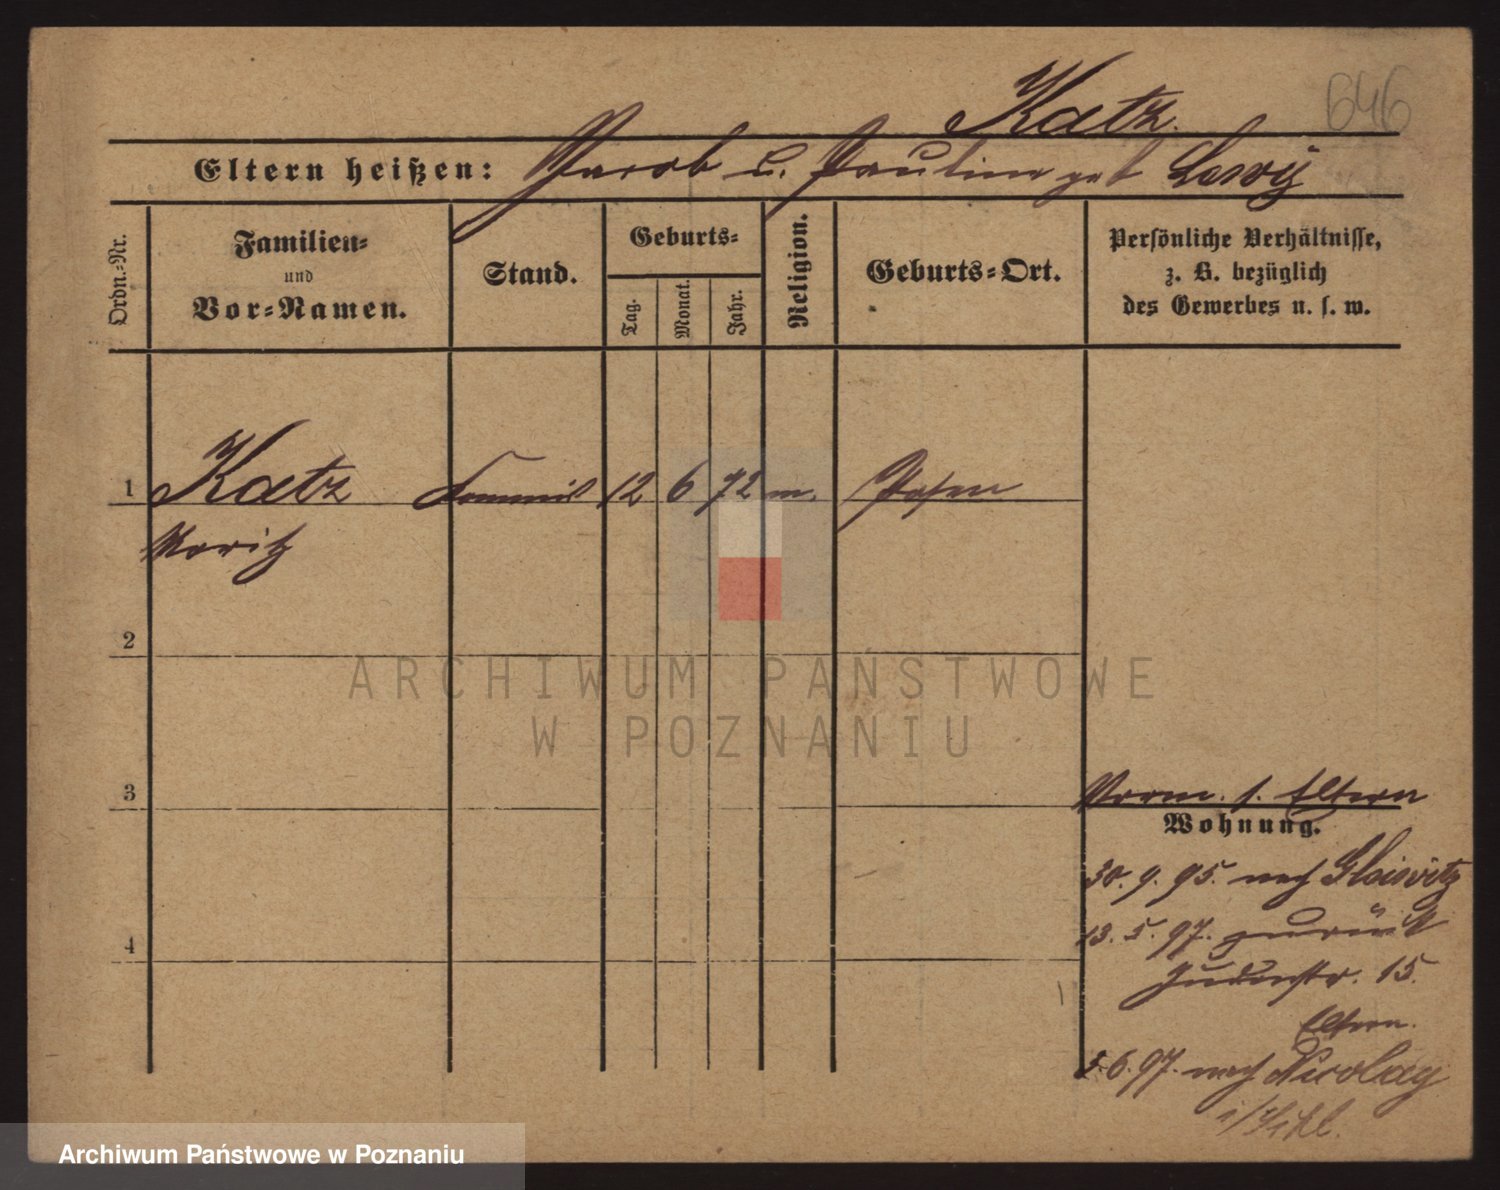 646
Katz.
Eltern heißen: Jacob u. Pauline geb Lewy
Ordn.-Nr.
Familien-
und
Vor-Namen.
Stand.
Geburts-
Tag.
Monat.
Jahr.
Religion.
Geburts-Ort.
Persönliche Verhältnisse,
z. B. bezüglich
des Gewerbes u. s. w.
1 Katz Commis 12 6 72 m. Posen
Moritz
2
ARCHIWUM PAŃSTWOWE
W POZNANIU
3
Vorm. s. Eltern
Wohnung.
30. 9. 95. nach Gleiwitz
13. 5. 97. zurück
4
Judenstr. 15.
Eltern.
5. 6. 97. nach Nicolay
Archiwum Państwowe w Poznaniu